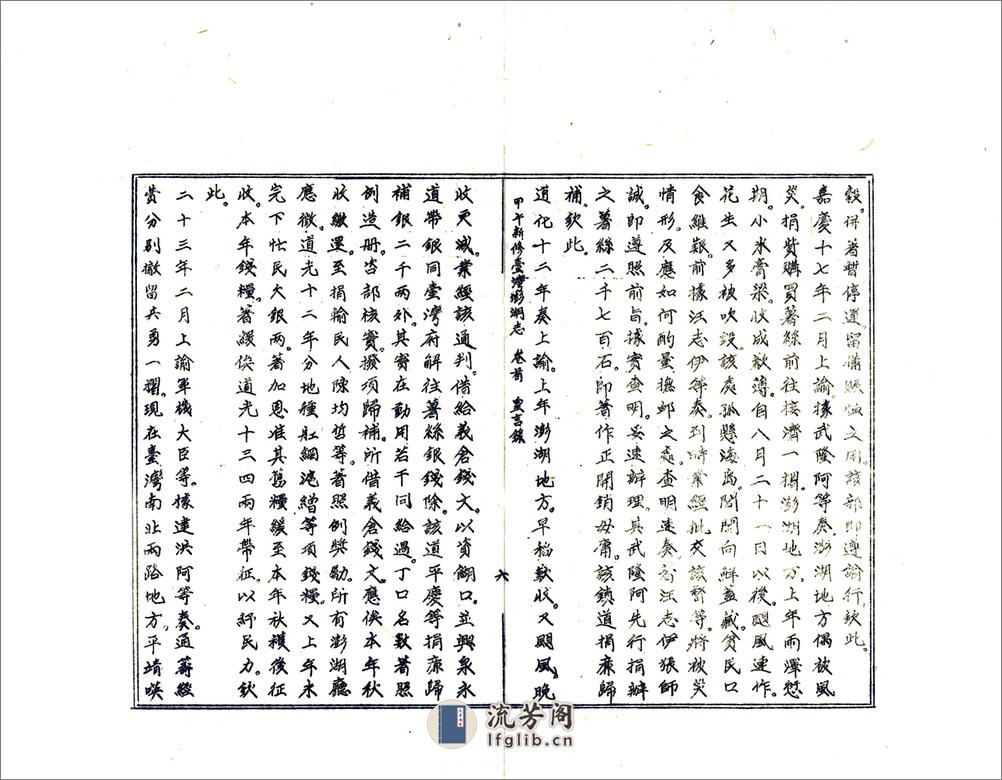 穀。併著暫停運。留備賑恤之用。該部卽遵諭行。欽此。
嘉慶十七年二月上諭。據武隆阿等奏。澎湖地方偶被風
災。捐貲購買薯絲前往接濟一摺。澎湖地方。上年雨澤愆
期。小米膏粱。收成歉薄。自八月二十一日以後。颶風連作。
花生又多被吹毀。該處孤懸海島。閭閻向鮮蓋藏。貧民口
食維艱。前據汪志伊等奏到時。業經批交該督等。將被災
情形。及應如何酌量撫卹之處。查明速奏。着汪志伊張師
誠。卽遵照前旨。據實查明。妥速辦理。其武隆阿先行捐辦
之薯絲二千七百石。卽著作正開銷。毋庸該鎮道捐廉歸
補。欽此。
道化十二年奏上諭。上年澎湖地方。早稻歉收。又颶風。晚
甲午新修臺灣澎湖志 卷首 皇言錄
六
收更減。業經該通判。借給義倉錢文。以資餬口。並興泉永
道帶銀同臺灣府解往薯絲銀錢。除該道平慶等捐廉歸
補銀二千兩外。其實在動用若干。同給過丁口名數。著照
例造册。咨部核實。撥項歸補。所借義倉錢文。應俟本年秋
收繳還。至捐輸民人陳均哲等。著照例獎勵。所有澎湖廳
應徵道光十二年分地種缸網滬繒等項錢糧。又上年未
完下忙民欠銀兩。著加恩准其舊糧緩至本年秋穫後征
收。本年錢糧。著緩俟道光十三四兩年帶征。以紓民力。欽
此。
二十三年二月上諭軍機大臣等。據達洪阿等奏。通籌經
費分別撤留兵勇一摺。現在臺灣南北兩路地方。平靖暎
流芳阁
lfglib.cn